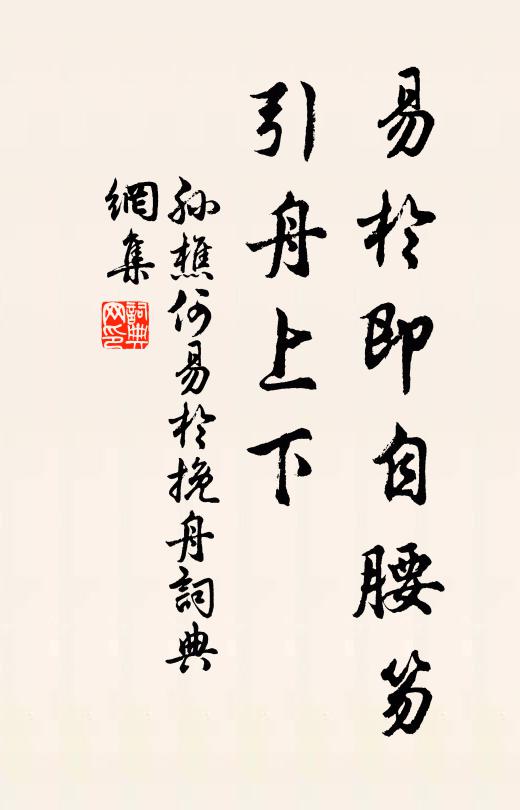 易於即自腰笏
引舟上下
孫樵何易於挽舟詞典
網集
詞典
网印